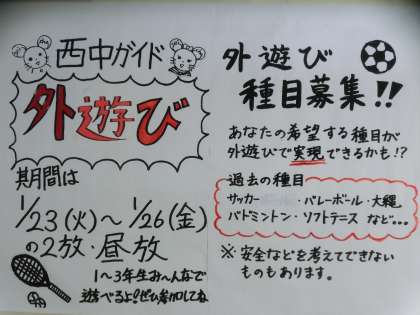 西中ガイド
外遊び
期間は
1/23(火)〜1/26(金)
の2放・昼放
1〜3年生み〜んなで
遊べるよ!ぜひ参加してね
外遊び
種目募集!!
あなたの希望する種目が
外遊びで実現できるかも!?
過去の種目
サッカー・バレーボール・大縄
バドミントン・ソフトテニス など...
※安全などを考えてできない
ものもあります。